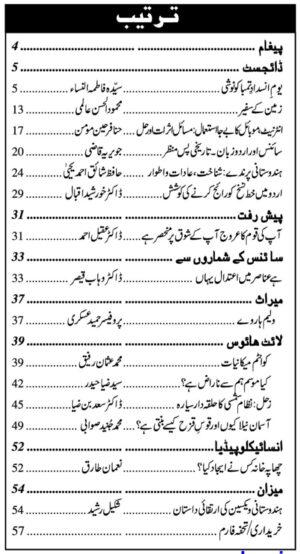 ترتیب
پیغام ........ 4
ڈائجسٹ ........ 5
یوم انسدادِ تمباکو نوشی ........ سیّدہ فاطمۃ النساء ........ 5
زمین کے سفیر ........ محمود الحسن عالمی ........ 13
انٹرنیٹ، موبائل کا بے جا استعمال: مسائل اثرات اور حل ........ حنا فرحین مومن ........ 17
سائنس اور اردو زبان ۔ تاریخی پس منظر ........ جویریہ قاضی ........ 20
ہندوستانی پرندے: شناخت، عادات و اطوار ........ حافظ شائق احمد یحییٰ ........ 24
اردو میں خط نسخ کو رائج کرنے کی کوشش ........ ڈاکٹر خورشید اقبال ........ 29
پیش رفت ........ 31
آپ کی قوم کا عروج آپ کے شوق پر منحصر ہے ........ ڈاکٹر عقیل احمد ........ 31
سائنس کے شماروں سے ........ 33
ہے عناصر میں اعتدال یہاں ........ ڈاکٹر وہاب قیصر ........ 33
میراث ........ 37
ولیم ہاروے ........ پروفیسر حمید عسکری ........ 37
لائٹ ہاؤس ........ 39
کوانٹم میکانیات ........ محمد عثمان رفیق ........ 39
کیا موسم ہم سے ناراض ہے؟ ........ سید ضیا حیدر ........ 42
زحل: نظام شمسی کا حلقہ دار سیارہ ........ ڈاکٹر سعد بن ضیا ........ 45
آسمان نیلا کیوں اور قوسِ قزح کیسے بنتی ہے؟ ........ محمد جنید صوابی ........ 49
انسائیکلوپیڈیا ........ 52
چھاپہ خانہ کس نے ایجاد کیا؟ ........ نعمان طارق ........ 52
میزان ........ 54
ہندوستانی ویکسین کی ارتقائی داستان ........ شکیل رشید ........ 54
خریداری/تحفہ فارم ........ 57